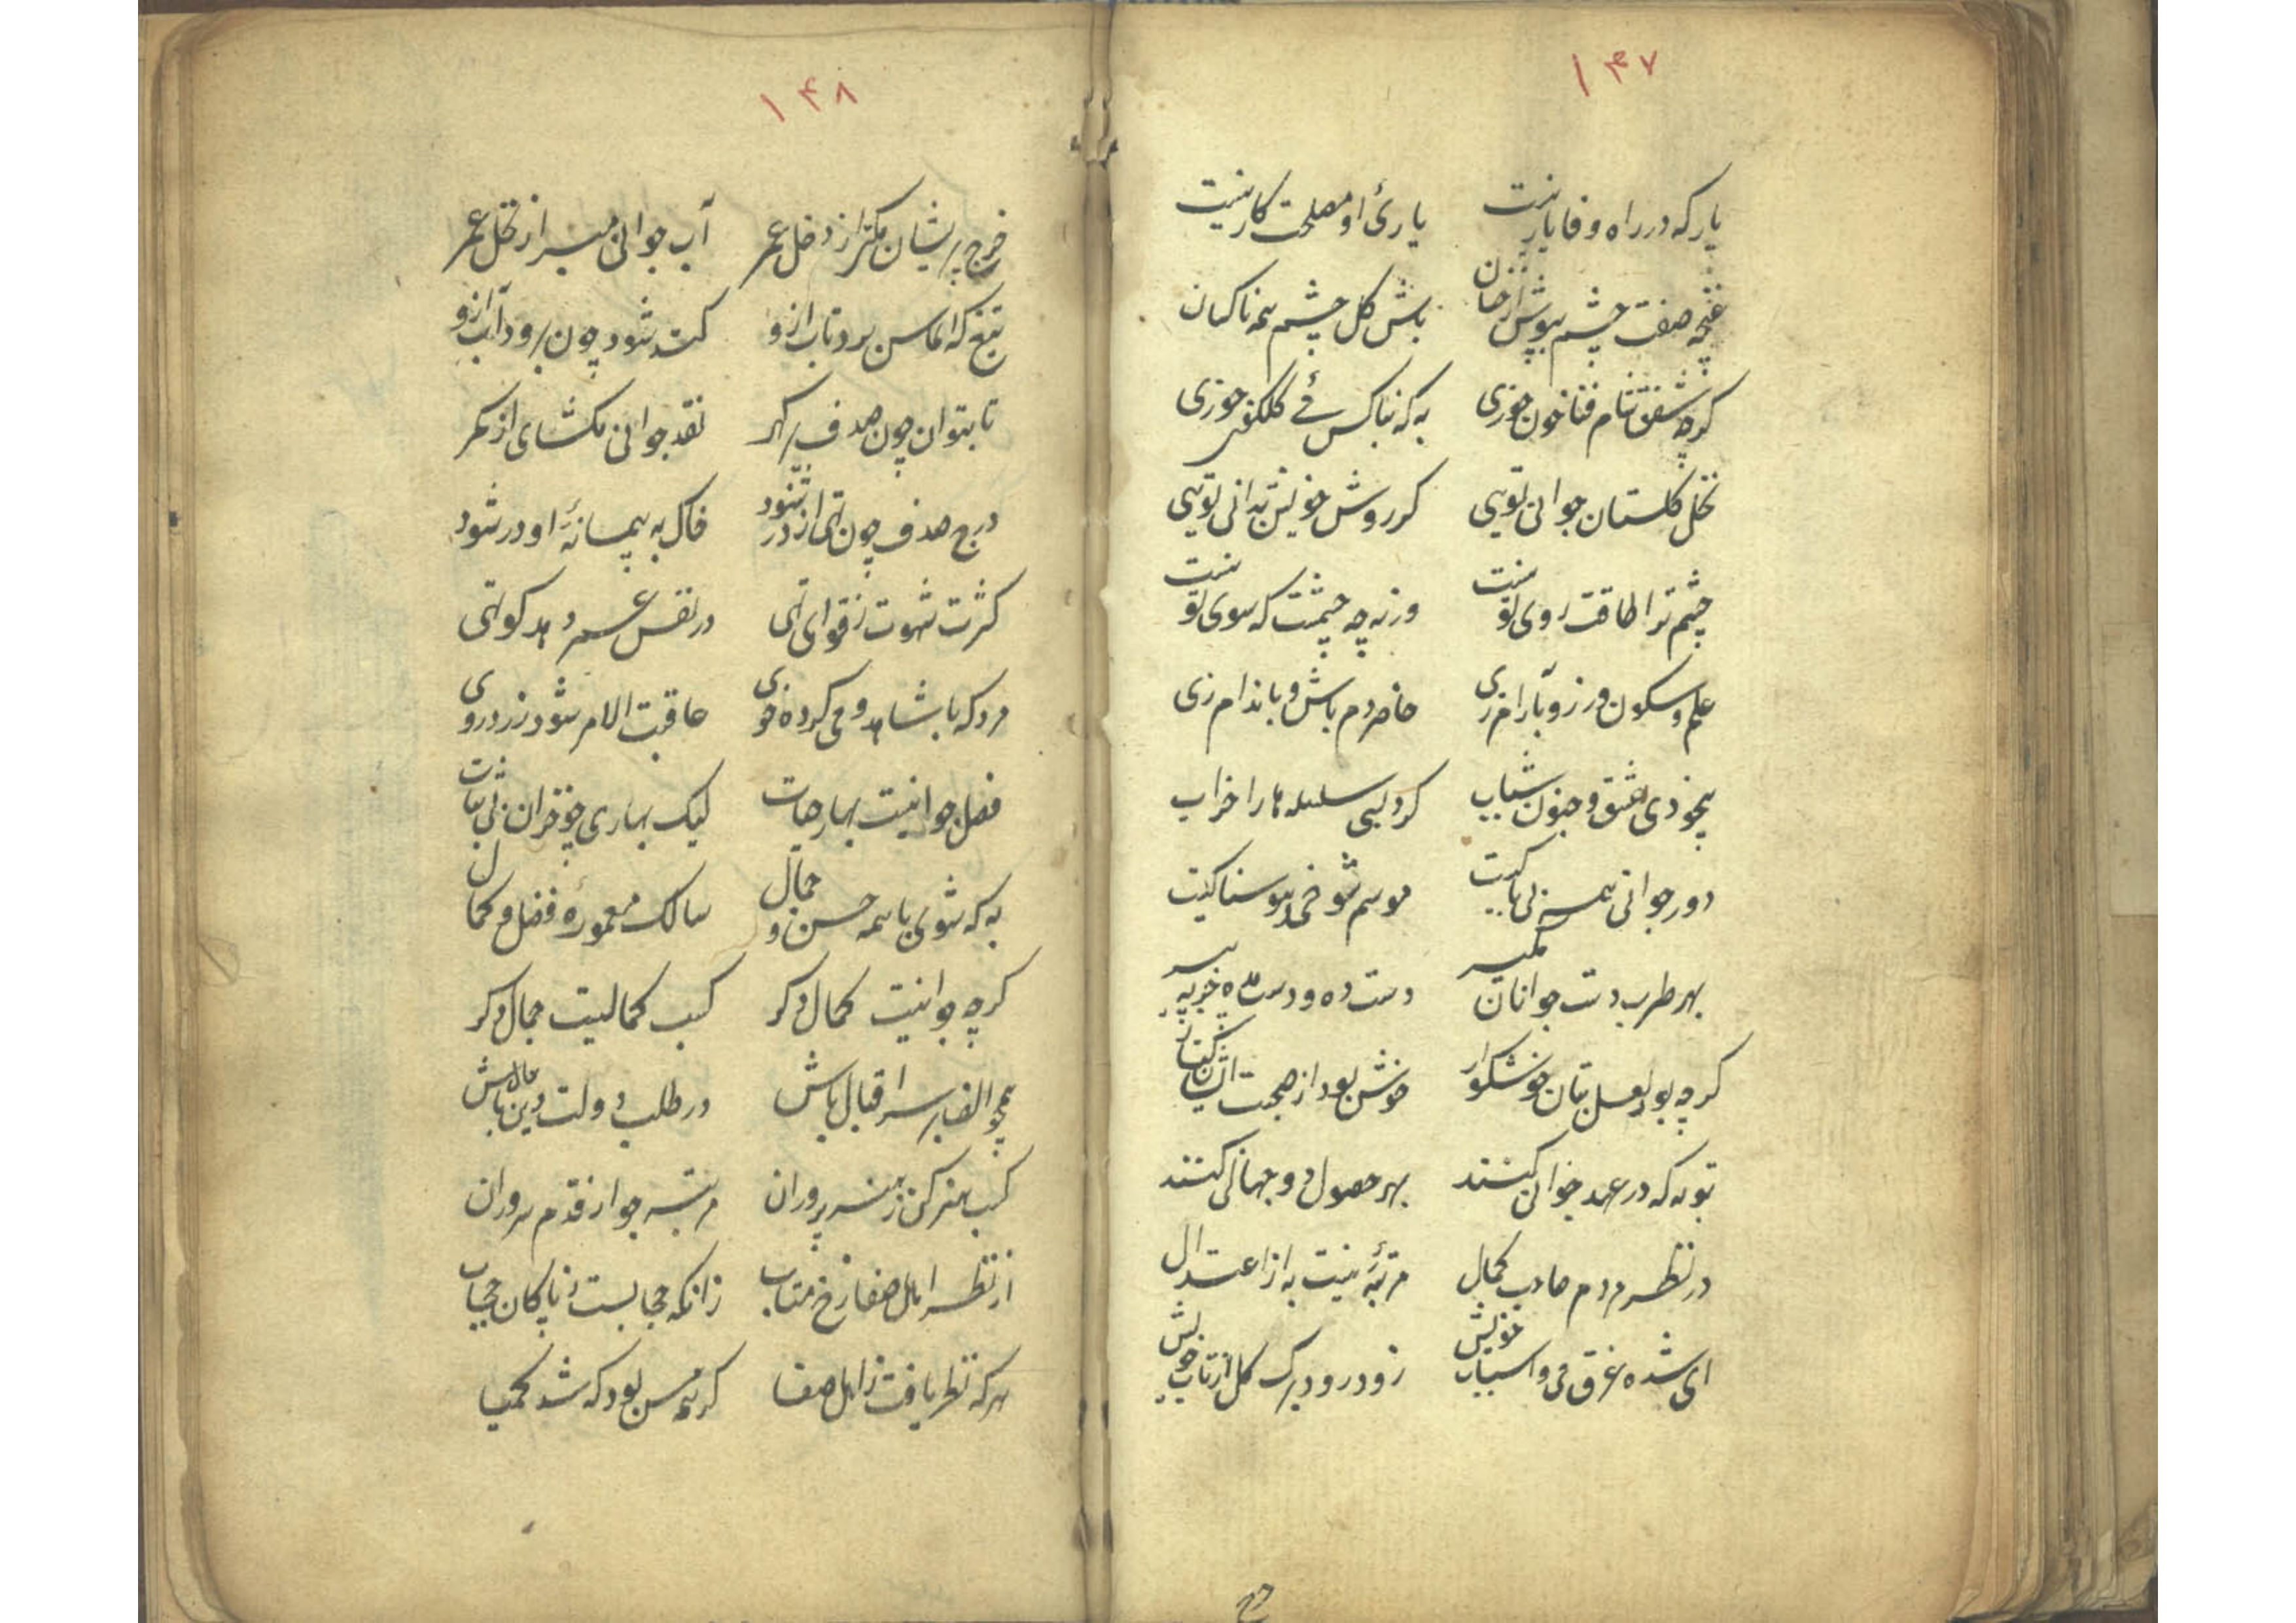 ۱۴۷
یار که در راه وفا یار نیست یاریٔ او مصلحت کار نیست
غنچه صفت چشم بپوش از خسان باش گل چشم همه ناکسان
کرچه شفق شام فنا خون خوری به که بناکس می کلکون خوری
نخل کلستان جوانی تویی کر روش خویش بدانی تویی
چشم ترا طاقت روی تو نیست ورنه چه چشمست که سوی تو نیست
علم و سکون ورز و بآرام زی حاضر دم باش و باندام زی
بیخودی عشق و جنون شباب کرد بسی سلسله ها را خراب
دور جوانی همه بی باکیست موسم شوخی و هوسناکیست
بهر طرب دست جوانان مگیر دست ده و دست مده جز به پیر
کرچه بود لعل بتان خوشکوار خوش بود از صحبت ایشان کنار
توبه که در عهد جوانی کنند بهر حصول دو جهانی کنند
در نظر مردم صاحب کمال مرتبهٔ نیست به از اعتدال
ای شده غرق می و اسباب خویش زود رود برک کل از تاب خویش
۱۴۸
خرج پریشان مکن از دخل عمر آب جوانی مبر از نخل عمر
تیغ که الماس برد تاب ازو کند شود چون برود آب ازو
تا بتوان چون صدف پر کهر نقد جوانی مکشای از کمر
درج صدف چون تهی از در شود خاک به پیمانهٔ او در شود
کثرت شهوت ز قوای تهی در نفس عمر دهد کوتهی
مرد که با شاهد و می کرده خوی عاقبت الامر شود زرد روی
فصل جوانیست بهار حیات لیک بهاری چو خزان بی ثبات
به که شوی با همه حسن و جمال سالک معمورهٔ فضل و کمال
کرچه جوانیست کمال دکر کسب کمالیست جمال دکر
همچو الف بر سر اقبال باش در طلب دولت دین مال باش
کسب هنر کن ز هنر پروران مرتبه جو از قدم سروران
از نظر اهل صفا رخ متاب زانکه حجابست ز پاکان حجاب
هر که نظر یافت ز اهل صفا کر همه مس بود که شد کیمیا
خرج